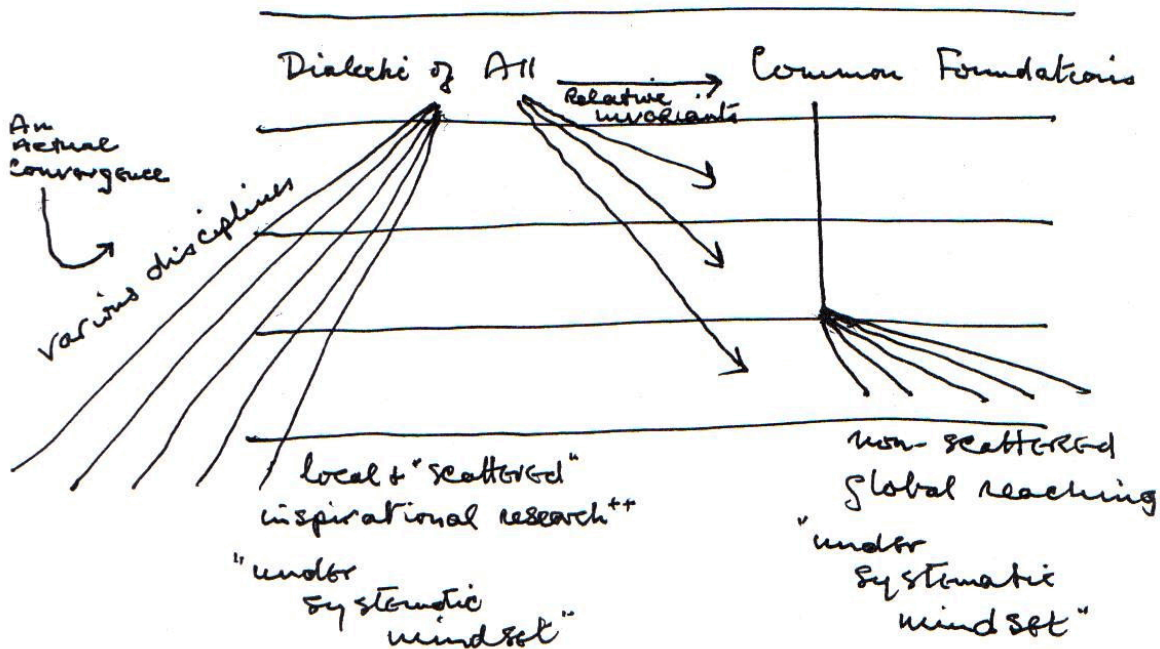 Dialectic of All
Relative
invariants
Common Foundations
An
Actual
Convergence
various disciplines
local & "scattered"
inspirational research++
"under
systematic
mindset"
non-scattered
global reaching
"under
systematic
mindset"